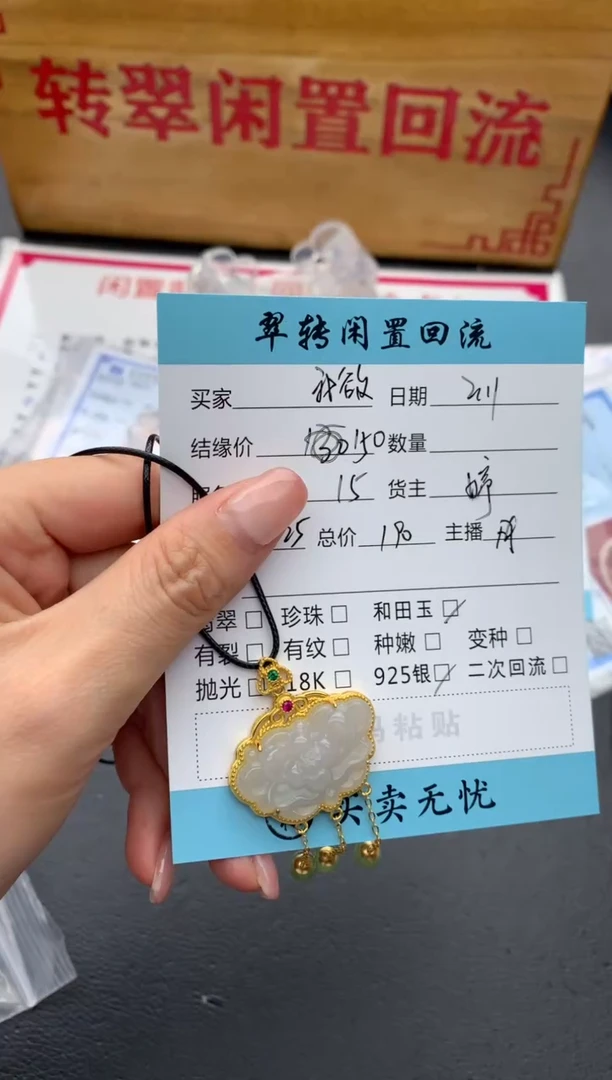 转翠闲置回流
闲置
翠转闲置回流
买家 日期 2.11
结缘价 150 数量
15 货主 婷
25 总价 190 主播 丹
翠□ 珍珠□ 和田玉☑
有裂□ 有纹□ 种嫩□ 变种□
抛光□ 18K□ 925银☑ 二次回流□
码粘贴
买卖无忧